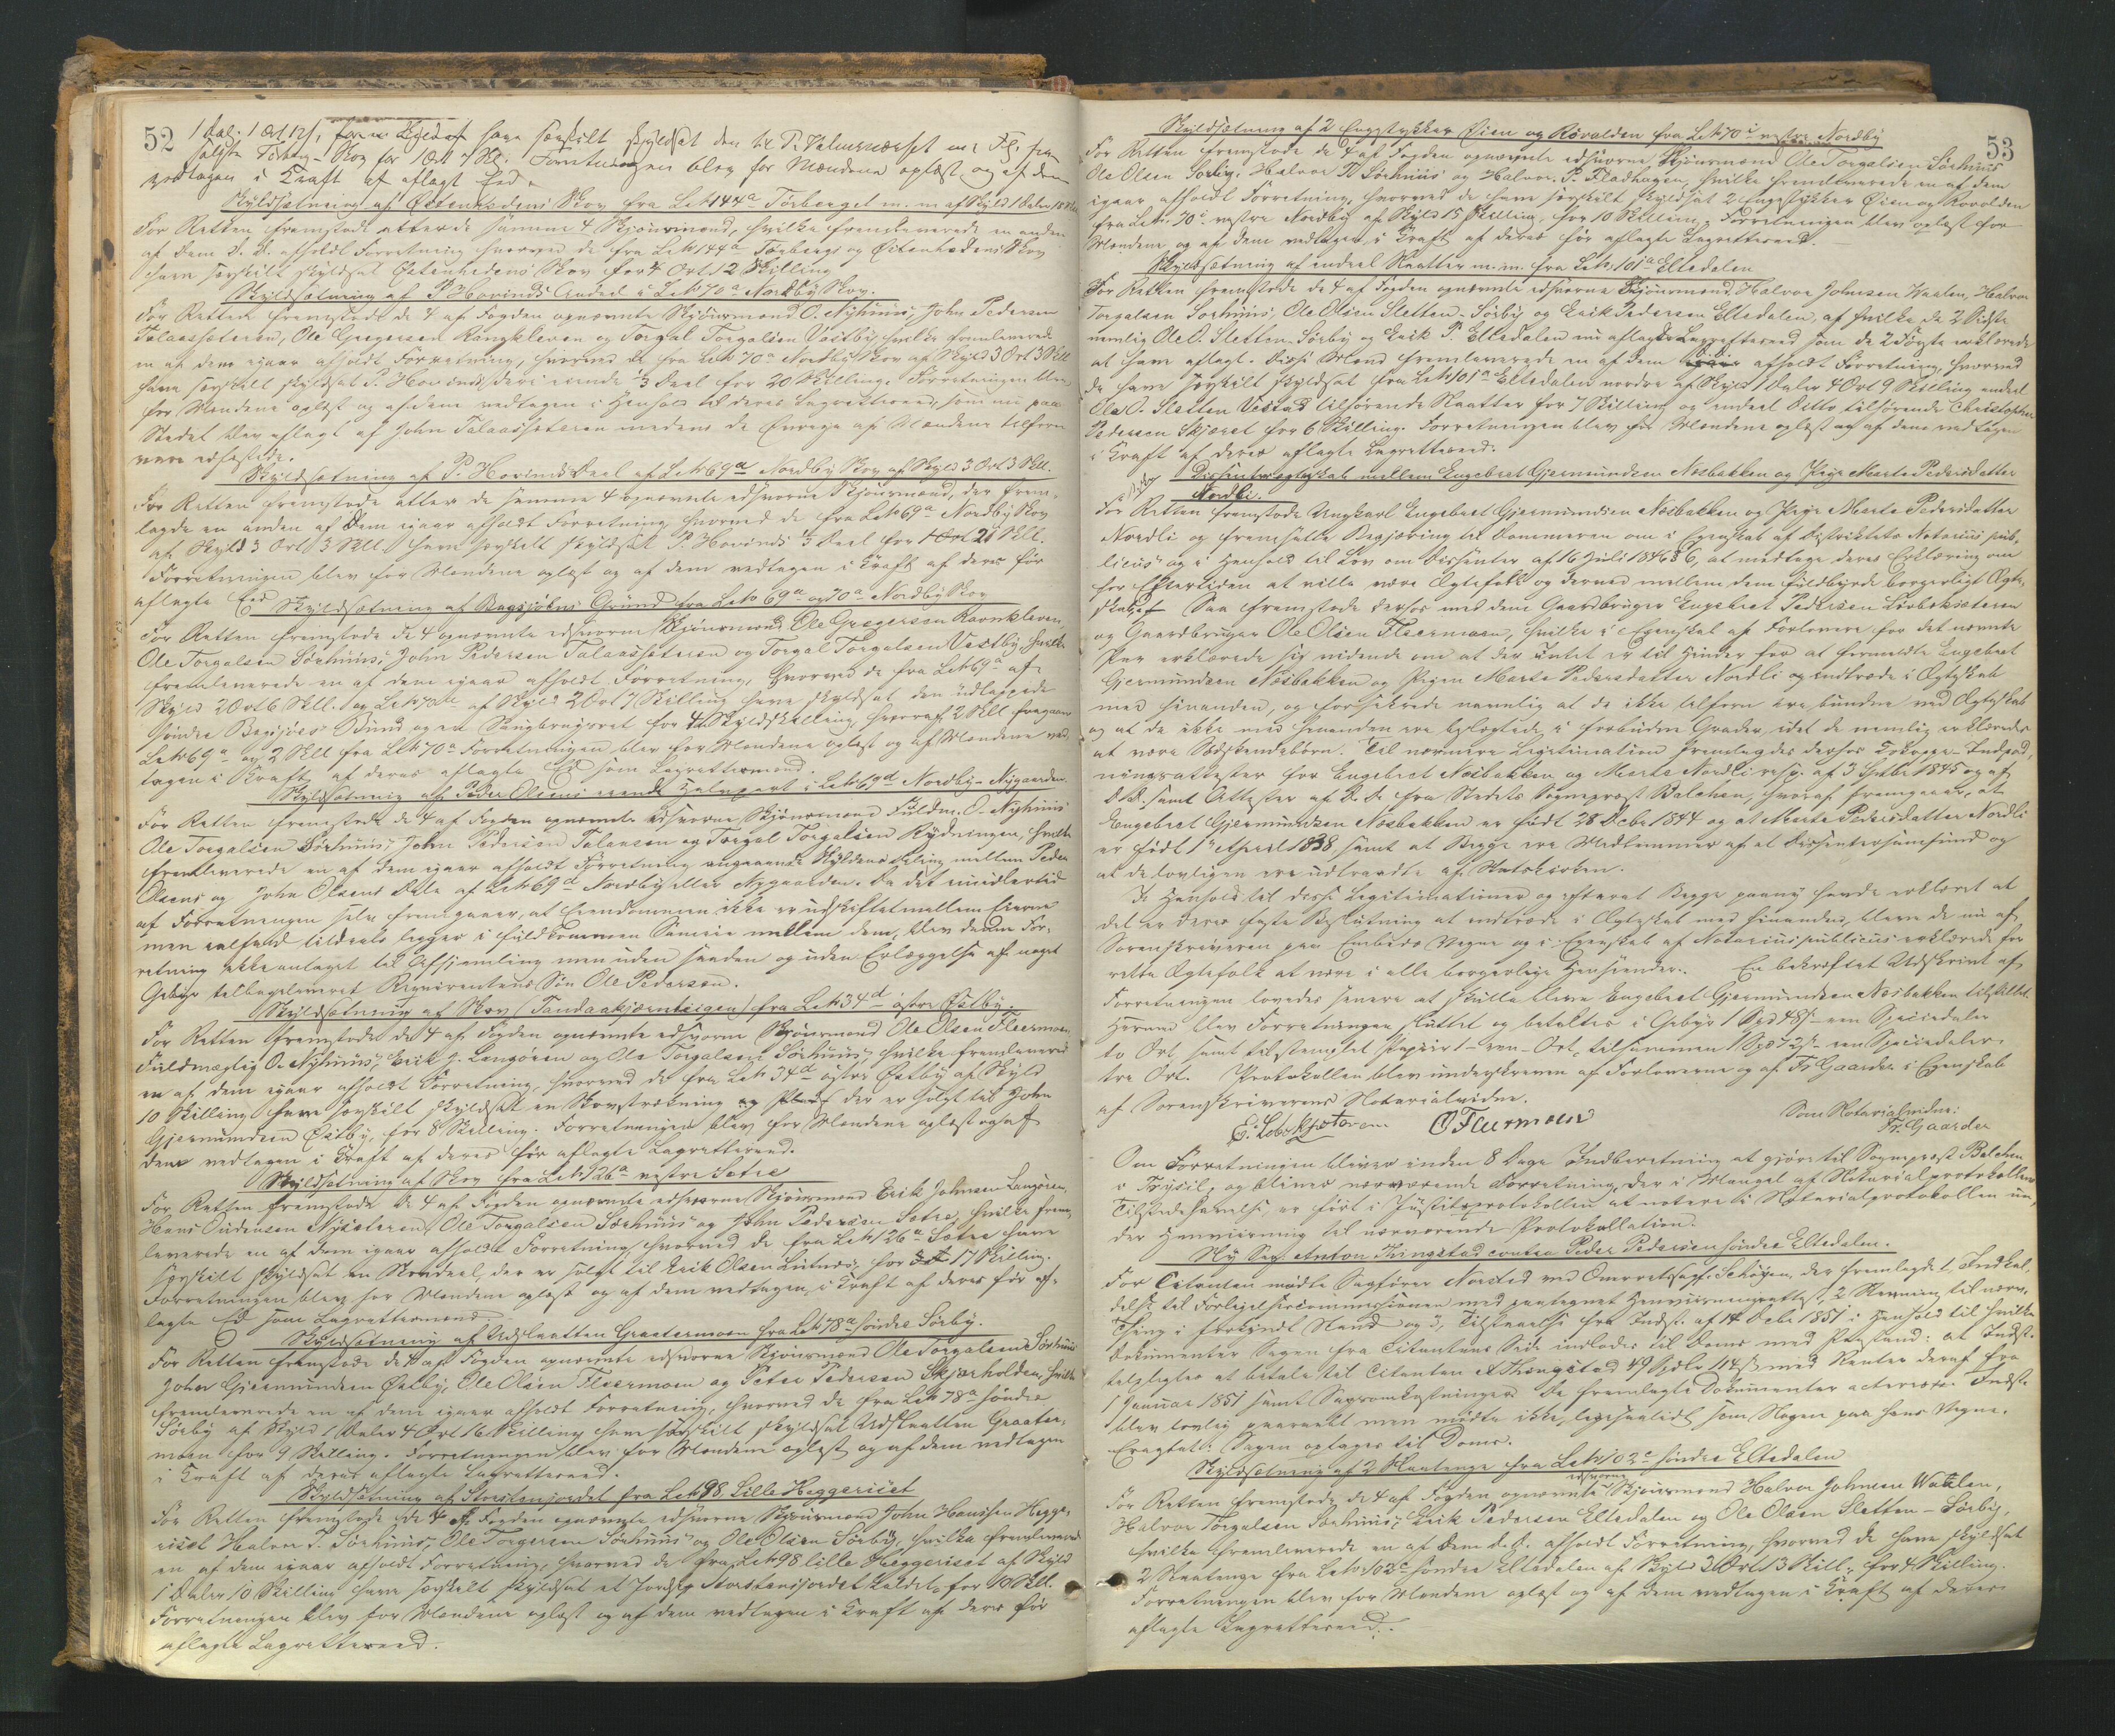 52
1 Dal. 1 Ort 12 s, have særskilt skyldsat den til P. Halvorsen
solgte Skov for 1 Ort 7 Sk. Forretningen blev for Mændene oplæst og af dem
vedtagen i Kraft af aflagt Eed.
Skyldsætning af Østenhedens Skov fra Lnr 144a Törberget m. m. af Skyld 1 Daler
For Retten fremstode atter de samme 4 Skjönsmænd, hvilke fremleverede en anden
af dem d. D. afholdt Forretning hvorved de fra Lnr 144a Törberget og Østenhedens Skov
have særskilt skyldsat Østenhedens Skov for 4 Ort 12 Skilling.
Skyldsætning af P. Hovinds Andeel i Lnr 70a Nordby Skov.
For Retten fremstode de 4 af Fogden opnævnte Skjönsmænd O. Nyhuus, John Pedersen
Talaassæteren, Ole Gregersen Rønkleven og Torgal Torgalsen Vestby, hvilke fremleverede
en af dem igaar afholdt Forretning, hvorved de fra Lnr 70a Nordby Skov af Skyld 3 Ort 3 Skll
have særskilt skyldsat P. Hovinds deri eiende 1/3 Deel for 20 Skilling. Forretningen blev
for Mændene oplæst og af dem vedtagen i Henhold til deres Lagretteseed, som nu paa
Stedet blev aflagt af John Talaassæteren medens de Øvrige af Mændene tilforn
vare edfæstede.
Skyldsætning af P. Hovinds Deel af Lnr 69a Nordby Skov af Skyld 3 Ort 3 Skll.
For Retten fremstode atter de samme 4 opnævnte edsvorne Skjönsmænd, der frem-
lagde en anden af dem igaar afholdt Forretning hvorved de fra Lnr 69a Nordby Skov
af Skyld 3 Ort 3 Skll. have særskilt skyldsat P. Hovinds 1/3 Deel for 21 Skll.
Forretningen blev for Mændene oplæst og af dem vedtagen i Kraft af deres før
aflagte Eed
Skyldsætning af Bagsjöens Grund fra Lnr 69a og 70a Nordby Skov
For Retten fremstode de 4 opnævnte edsvorne Skjönsmænd Ole Gregersen Ravnkleven,
Ole Torgalsen Sörhuus, John Pedersen Talaassæteren og Torgal Torgalsen Vestby, hvilke
fremleverede en af dem igaar afholdt Forretning, hvorved de fra Lnr 69a af
Skyld 2 Ort 6 Skll. og Lnr 70a af Skyld 2 Ort 7 Skilling have skyldsat den udtappede
søndre Bagsjöes Bund og en Saugbrugsret for 4 Skyldskilling, hvoraf 2 Skll fragaaer
Lnr 69a og 2 Skll fra Lnr 70a Forretningen blev for Mændene oplæst og af Mændene ved-
tagen i Kraft af deres aflagte Ed som Lagrettesmænd.
Skyldsætning af Peder Olsens eiende Halvpart i Lnr 69d Nordby-Nygaarden.
For Retten fremstode de 4 af Fogden opnævnte edsvorne Skjönsmænd Fuldm. O. Nyhuus
Ole Torgalsen Sörhuus, John Pedersen Talaasen og Torgal Torgalsen Rydningen, hvilke
fremleverede en af dem igaar afholdt Forretning angaaende Skyldens Deling mellem Peder
Olsens og John Olsens Dele af Lnr 69d Nordby eller Nygaarden. Da det imidlertid
af Forretningen selv fremgaaer, at Eiendommen ikke er udskiftet mellem Eierne
men ialfald tildeels ligger i fuldkommen Sameie mellem dem, blev denne For-
retning ikke antaget til Afhjemling men uden saadan og uden Erlæggelse af noget
Gebyr tilbageleveret Requirentens Søn Ole Pedersen.
Skyldsætning af Skov (Tandaakjærnteigen) fra Lnr 34d østre Østby.
For Retten fremstode de 4 af Fogden opnævnte edsvorne Skjönsmænd Ole Olsen Fleermoen,
Fuldmægtig O. Nyhuus, Erik J. Langören og Ole Torgalsen Sörhuus, hvilke fremleverede
en af dem igaar afholdt Forretning, hvorved de fra Lnr 34d østre Østby af Skyld
10 Skilling have særskilt skyldsat en Skovstrækning der er solgt til John
Gjermundsen Østby, for 8 Skilling. Forretningen blev for Mændene oplæst og af
dem vedtagen i Kraft af deres før aflagte Lagretteseed.
Skyldsætning af Skov fra Lnr 126a vestre Sætre
For Retten fremstode de 4 af Fogden opnævnte edsvorne Skjönsmænd Erik Johnsen Langören,
Hans Andersen Nysæteren, Ole Torgalsen Sörhuus og John Pedersen Sætre, hvilke frem-
leverede en af dem igaar afholdt Forretning, hvorved de fra Lnr 126a Sætre have
særskilt skyldsat en Skovdeel, der er solgt til Erik Olsen Lutnes, for 17 Skilling.
Forretningen blev for Mændene oplæst og af dem vedtagen i Kraft af deres før af-
lagte Ed som Lagrettesmænd
Skyldsætning af Udslaatten Graatermoen fra Lnr 78a søndre Sörby.
For Retten fremstode de 4 af Fogden opnævnte edsvorne Skjönsmænd Ole Torgalsen Sörhuus
John Gjermundsen Østby, Ole Olsen Fleermoen og Peter Pedersen Skjærholden, hvilke
fremleverede en af dem igaar afholdt Forretning, hvorved de fra Lnr 78a søndre
Sörby af Skyld 1 Daler 4 Ort 16 Skilling have særskilt skyldsat Udslaatten Graater-
moen for 9 Skilling. Forretningen blev for Mændene oplæst og af dem vedtagen
i Kraft af deres aflagte Lagretteseed.
Skyldsætning af Storstensjordet fra Lnr 98 Lille Heggeriset
For Retten fremstode de 4 af Fogden opnævnte edsvorne Skjönsmænd John Hansen Hegge-
riset Halvor T. Sörhuus, Ole Torgersen Sörhuus og Ole Olsen Sörby, hvilke fremleverede
en af dem igaar afholdt Forretning, hvorved de fra Lnr 98 lille Heggeriset af Skyld
1 Daler 10 Skilling have særskilt skyldsat et Jordstk Storstensjordet kaldet, for 10 Skll.
Forretningen blev for Mændene oplæst og af dem vedtagen i Kraft af deres før
aflagte Lagretteseed.
53
Skyldsætning af 2 Engstykker Øien og Rövolden fra Lnr 70c vestre Nordby
For Retten fremstode de 4 af Fogden opnævnte edsvorne Skjönsmænd Ole Torgalsen Sörhuus
Ole Olsen Sörby, Halvor T. Sörhuus og Halvor P. Fladhagen, hvilke fremleverede en af dem
igaar afholdt Forretning, hvorved de have særskilt skyldsat 2 Engstykker Øien og Rövolden
fra Lnr. 70c vestre Nordby af Skyld 15 Skilling, for 10 Skilling. Forretningen blev oplæst for
Mændene og af dem vedtagen i Kraft af deres før aflagte Lagretteseed.
Skyldsætning af endeel Slaatter m. m. fra Lnr 101a Eltedalen
For Retten fremstode de 4 af Fogden opnævnte edsvorne Skjönsmænd, Halvor Johnsen Waalen, Halvor
Torgalsen Sörhuus, Ole Olsen Sletten-Sörby og Erik Pedersen Eltedalen, af hvilke de 2 Sidste
nemlig Ole O. Sletten-Sörby og Erik P. Eltedalen nu aflagde Lagretteseed som de 2 Første erklærede
at have aflagt. Disse Mænd fremleverede en af dem d. D. afholdt Forretning, hvorved
de have særskilt skyldsat fra Lnr 101a Eltedalen nordre af Skyld 1 Daler 4 Ort 9 Skilling endeel
Ole O. Sletten Vestad tilhørende Slaatter for 7 Skilling og endeel Ditto tilhørende Christopher
Pedersen Skjæret for 6 Skilling. Forretningen blev for Mændene oplæst og af dem vedtagen
i Kraft af deres aflagte Lagretteseed.
Dissenterægteskab mellem Engebret Gjermundsen Næsbakken og Pige Marte Pedersdatter
Nordli.
For Retten fremstode Ungkarl Engebret Gjermundsen Næsbakken og Pige Marte Pedersdatter
Nordli og fremsatte Begjæring til Dommeren om i Egenskab af Distriktets Notarius pub-
licus og i Henhold til Lov om Dissenter af 16 Juli 1845 § 6, at modtage deres Erklæring om
for Eftertiden at ville være Ægtefolk og derved mellem dem fuldbyrde borgerligt Ægte-
skab. Saa fremstode derhos med dem Gaardbruger Engebret Pedersen Lövbeksæteren
og Gaardbruger Ole Olsen Fleermoen, hvilke i Egenskab af Forlovere for det nævnte
Par erklærede sig vidende om at der Intet er til Hinder for at formeldte Engebret
Gjermundsen Næsbakken og Pigen Marte Pedersdatter Nordli og indtræde i Ægteskab
med hinanden, og forsikrede navnlig at de ikke tilforn ere bundne ved Ægteskab
og at de ikke med hinanden ere beslægtede i forbudne Grader, idet de nemlig erklæredes
at være Sødskendebørn. Til nærmere Legitimation fremlagdes derhos Kokoppe-Indpod-
ningsattester for Engebret Næsbakken og Marte Nordli resp. af 3 Septbr 1845 og af
d. D. samt Attester af d. D. fra Stedets Sognepræst Balchen, hvoraf fremgaaer, at
Engebret Gjermundsen Næsbakken er født 28 Decbr 1844 og at Marte Pedersdatter Nordli
er født 1ste April 1838, samt at Begge ere Medlemmer af et Dissentersamfund og
at de lovligen ere udtraadte af Statskirken.
I Henhold til disse Legitimationer og efterat Begge paany havde erklæret at
det er deres faste Beslutning at indtræde i Ægteskab med hinanden, bleve de nu af
Sorenskriveren paa Embeds Vegne og i Egenskab af Notarius publicus erklærede for
rette Ægtefolk at være i alle borgerlige Henseender. En bekræftet Udskrivt af
Forretningen lovedes senere at skulle blive Engebret Gjermundsen Næsbakken tilstillet.
Hermed blev Forretningen sluttet og betaltes i Gebyr 1 Spd 48 s - een Speciedaler
to Ort samt til stemplet Papiir 1 - een - Ort, tilsammen 1 Spd 72 s - een Speciedaler
tre Ort. Protokollen blev underskreven af Forloverne og af Fr. Gaarder i Egenskab
af Sorenskriverens Notarialvidne.
E. Lövbeksæteren O Fleermoen Som Notarialvidne:
Fr. Gaarder
Om Forretningen bliver inden 8 Dage Indberetning at gjøre til Sognepræst Balchen
i Trysil, og bliver nærværende Forretning, der i Mangel af Notarialprotokollens
Tilstedehavelse, er ført i Justitsprotokollen at notere i Notarialprotokollen un-
der Henviisning til nærværende Protokollation.
Ny Sag. Anton Thingstad contra Peder Pedersen søndre Eltedalen.
For Citanten mødte Sagfører Norsted ved Overretssagf. Schøyen, der fremlagde 1, Indkal-
delse til Forligelsescommissionen med paategnet Henviisningsattest, 2 Stevning til nærv.
Thing i forkyndt Stand og 3, Tilstaaelse fra Indst. af 14 Decbr 1851 i Henhold til hvilke
Dokumenter Sagen fra Citantens Side indlodes til Doms med Paastand: at Indst.
tilpligtes at betale til Citanten A. Thingstad 49 Spdlr 114 s med Renter deraf fra
1 Januar 1851 samt Sagsomkostninger. De fremlagte Dokumenter acteres. Indst.
blev lovlig paaraabt men mødte ikke, ligesaalidt som Nogen paa hans Vegne.
Eragtet: Sagen optages til Doms.
Skyldsætning af 2 Slaatenge fra Lnr 102c søndre Eltedalen
For Retten fremstode de 4 af Fogden opnævnte edsvorne Skjönsmænd Halvor Johnsen Waalen,
Halvor Torgalsen Sörhuus, Erik Pedersen Eltedalen og Ole Olsen Sletten-Sörby,
hvilke fremleverede en af dem d. D. afholdt Forretning, hvorved de have skyldsat
2 Slaatenge fra Lnr 102c søndre Eltedalen af Skyld 3 Ort 13 Skill., for 4 Skilling.
Forretningen blev for Mændene oplæst og af dem vedtagen i Kraft af deres
aflagte Lagretteseed.